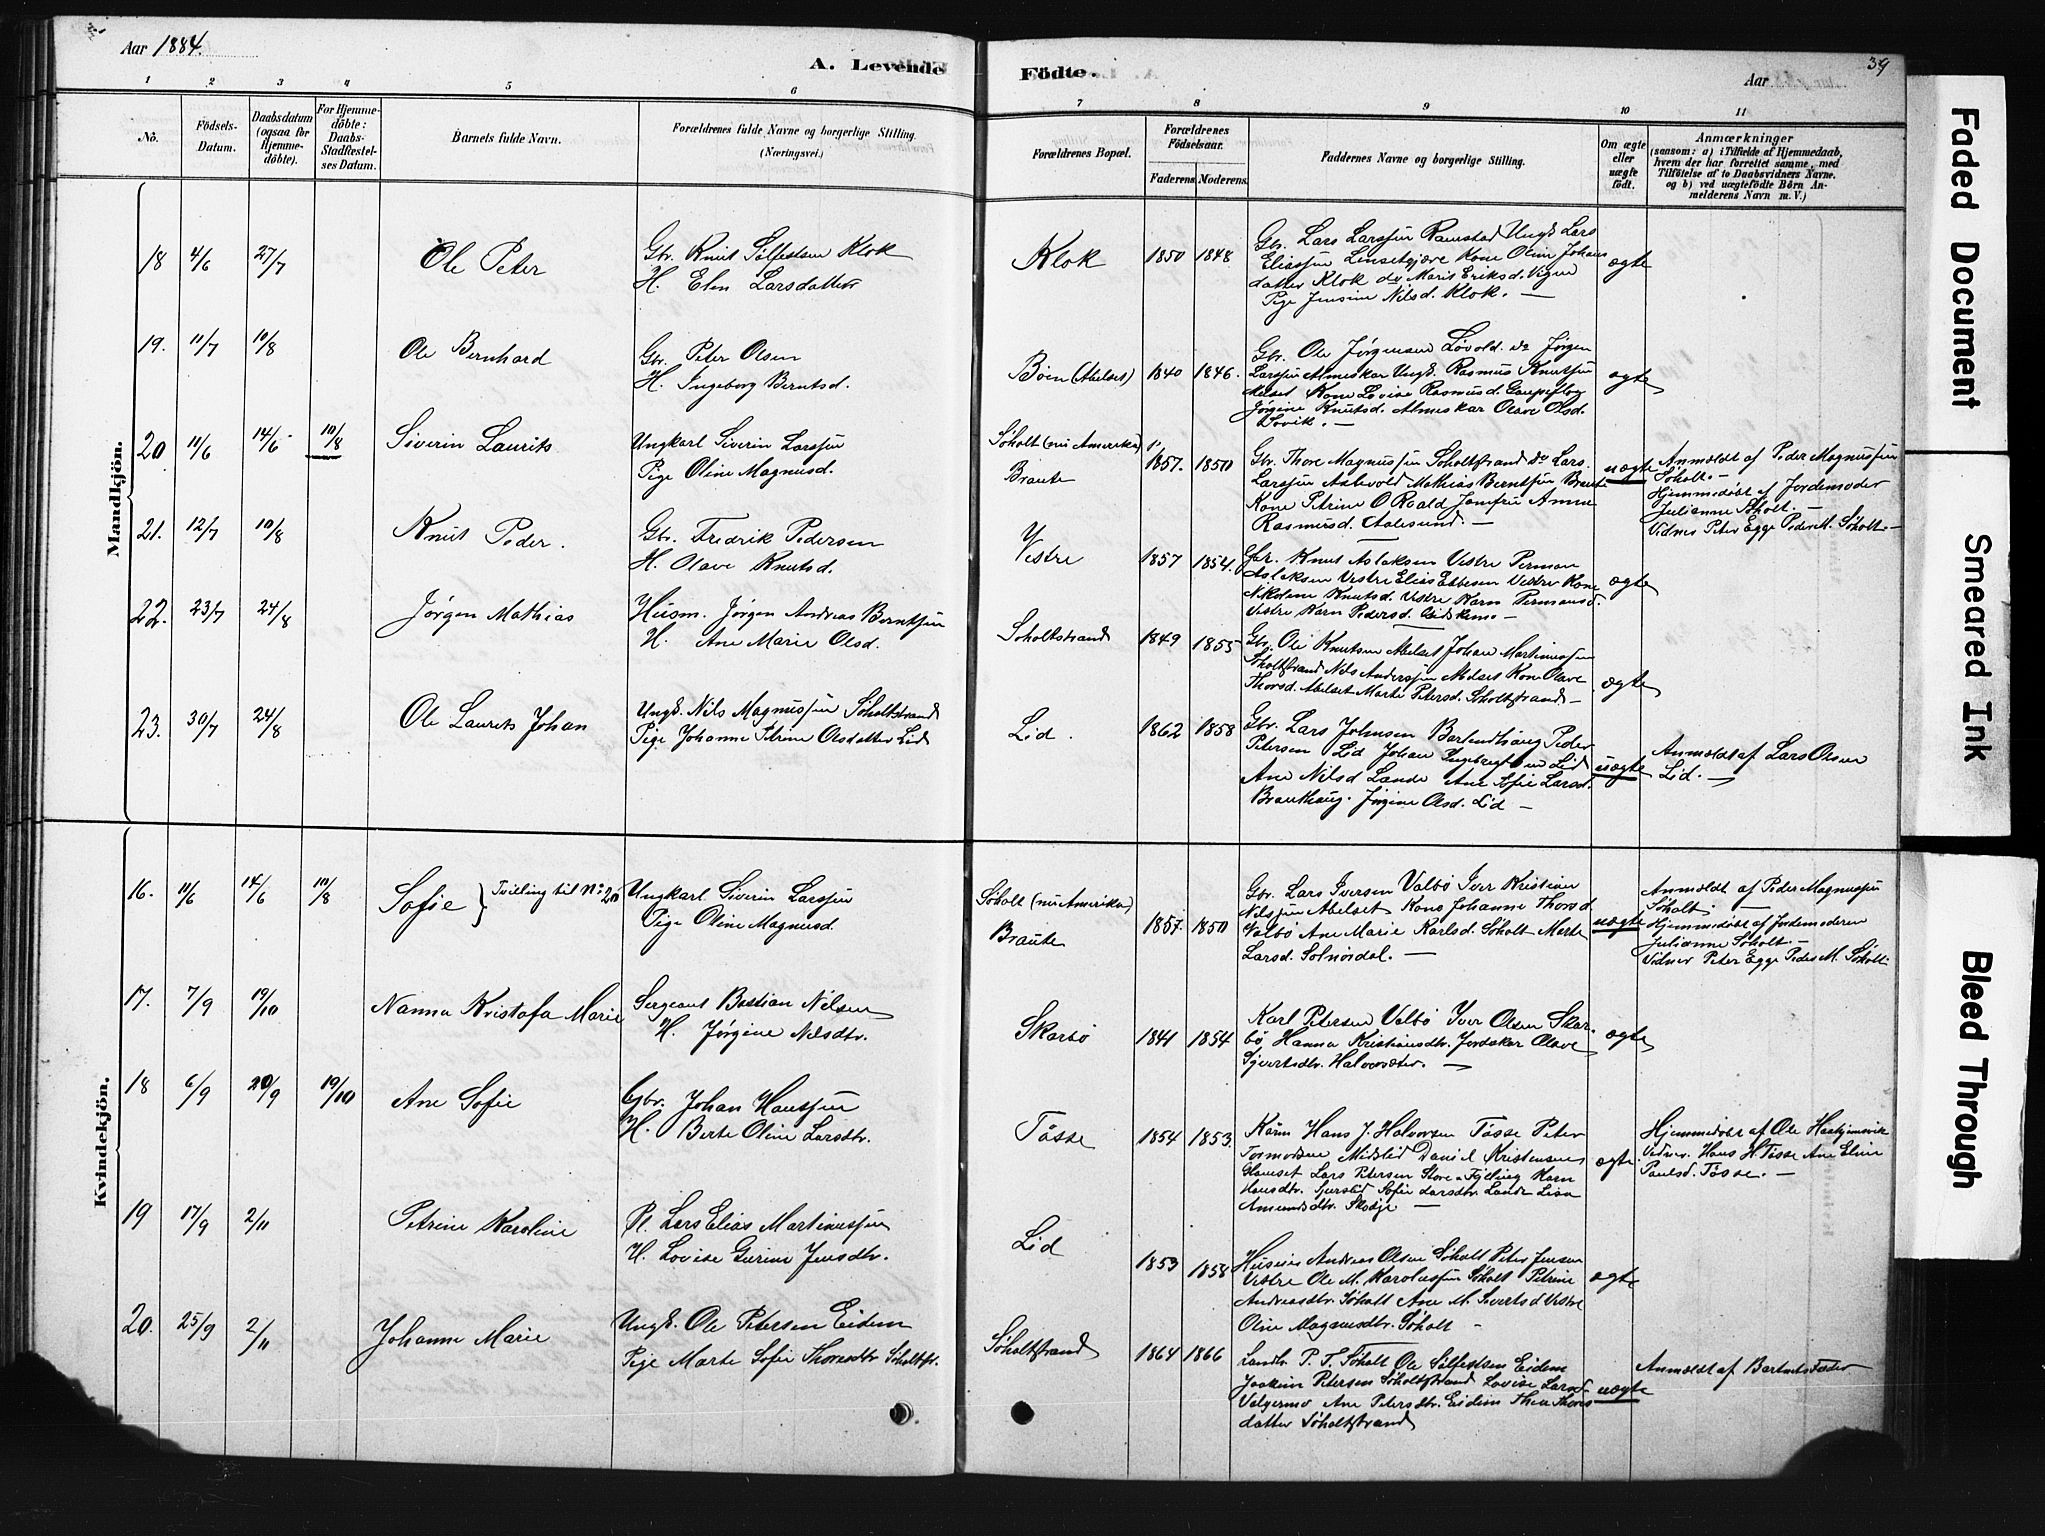 Aar 1884.
A. Levende
Födte.
Aar
39
1 2 3 4 5 6 7 8 9 10 11
No.
Födsels-
Datum.
Daabsdatum
(ogsaa for
Hjemme-
döbte).
For Hjemme-
döbte:
Daabs-
Stadfæstel-
ses Datum.
Barnets fulde Navn.
Forældrenes fulde Navne og borgerlige Stilling.
(Næringsvei.)
Forældrenes Bopæl.
Forældrenes
Födselsaar.
Faderens. Moderens.
Faddernes Navne og borgerlige Stilling.
Om ægte
eller
uægte
födt.
Anmærkninger
(sansom: a) i Tilfælde af Hjemmedaab,
hvem der har forrettet samme, med
Tilföielse af to Daabsvidners Navne,
og b) ved uægtefödte Börn An-
melderens Navn m. V.)
Mandkjön.
18 4/6 27/7
Ole Peter
Gbr. Knut Sølfestsen Klok
H. Elen Larsdatter
Klok
1850 1848
Gbr. Lars Larssen Ramstad Ungk Lars
Eliassen Linsetgjære Kone Oline Johans
datter Klok do Marit Eriksd. Vigen
Pige Jensine Nilsd. Klok. —
ægte
19. 11/7 10/8
Ole Bernhard
Gbr. Peter Olsen
H. Ingeborg Berntsd.
Bøen (Abelset)
1840 1846.
Gbr. Ole Jørgensen Løvold do Jørgen
Larssen Almeskar Ungk. Rasmus Knutsen
Melset Kone Lovise Rasmusd. Gaupeflog
Jørgine Knutsd. Almeskar Olave Olsd.
Løvik. —
ægte
20 11/6 14/6 10/8
Siverin Laurits
Ungkarl Siverin Larssen
Pige Oline Magnusd.
Søholt (nu Amerika)
Braute
1857. 1850
Gbr. Thore Magnussen Søholtstrand do Lars
Larssen Aasevold Mathias Berntsen Braute
Kone Petrine O Roald Jomfru Anna
Rasmusd. Aalesund. —
uægte
Anmeldt af Peder Magnussen
Søholt. —
Hjemmedøbt af Jordemoder
Julianne Søholt. —
Vidner Peter Egge Peder M. Søholt —
21. 12/7 10/8
Knut Peder.
Gbr. Fredrik Pedersen
H. Olave Knutsd.
Vestre
1857 1854.
Gbr. Knut Aslaksen Vestre Perman
Aslaksen Vestre Elias Esbesen Vestre Kone
Nikoline Knutsd. Vestre Karn Permansd.
Vestre Karn Pedersd. Eidskrem —
ægte
22. 23/7 24/8
Jørgen Mathias
Husm. Jørgen Andreas Berntsen
H. Ane Marie Olsd.
Søholtstrand
1849 1855
Gbr. Ole Knutsen Abelset Johan Martinussen
Søholtstrand Nils Anderssen Melset Kone Olave
Thorsd. Abelset Marte Petersd. Søholtstrand —
ægte
23. 30/7 24/8
Ole Laurits Johan
Ungk. Nils Magnussen Søholtstrand
Pige Johanne Petrine Olsdatter Lid
Lid.
1862 1858
Gbr. Lars Johnsen Barlindhaug Peder
Petersen Lid Johan Ingebregtsen Lid
Ane Nilsd Lande Ane Sofie Larsd.
Brauthaug. Jørgine Olsd. Lid —
uægte
Anmeldt af Lars Olsen
Lid. —
Kvindekjön.
16. 11/6 14/6 10/8
Sofie } Tvilling til No 20
Ungkarl Siverin Larssen
Pige Oline Magnusd.
Søholt (nu Amerika)
Braute
1857. 1850
Gbr. Lars Iversen Valbø Iver Kristian
Nilssen Abelset Kone Johanne Thorsd
Valbø Ane Marie Karlsd. Søholt Marte
Larsd. Solnørdal. —
uægte
Anmeldt af Peder Magnussen
Søholt —
Hjemmedøbt af Jordemoderen
Julianne Søholt. —
Vidner Peter Egge Peder M. Søholt
17. 7/9 19/10
Nanna Kristofa Marie
Sergeant Bastian Nilsen
H. Jørgine Nilsdtr.
Skarbø
1841 1854
Karl Petersen Valbø Iver Olsen Skar-
bø Hanna Kristiansdtr. Jordakar Olave
Sjvertsdtr. Halvorsæter. —
ægte
18 6/9 20/9 19/10
Ane Sofie
Gbr. Johan Hanssen
H. Berte Oline Larsdtr.
Tøsse
1854 1853.
Kårm Hans J. Halvorsen Tøsse Peter
Tormodsen Midtlid Daniel Kristensen
Hamset Lars Petersen Store-Fjelling Karn
Hansdtr. Sjurslid Sofie Larsdtr. Lande Lisa
Amundsdtr. Skodje —
ægte.
Hjemmedøbt af Ole Haakjemsvik
Vidner. Hans H. Tøsse Ane Eline
Paulsd. Tøsse. —
19 17/9 2/11
Petrine Karoline
Pl. Lars Elias Martinussen
H. Lovise Gurine Jensdtr.
Lid
1853 1858
Husmn Andreas Olsen Søholt Peter Jensen
Vestre Ole M. Karolussen Søholt Petrine
Andreasdtr. Søholt Ane M. Sivertsd Vestre
Oline Magnusdtr. Søholt —
ægte
20. 25/9 2/11
Johanne Marie
Ungk. Ole Petersen Eidem
Pige Marte Sofie Thoresdtr Søholtstr.
Søholtstrand
1864 1866
Landhr. P. T. Søholt Ole Sølfestsen Eidem
Joakim Petersen Søholtstrand Lovise Larsd.
Valgermo Ane Petersdtr. Eidem Thea Thores
datter Søholtstrand
uægte
Anmeldt af Barnets Fader
Faded Document
Smeared Ink
Bleed Through